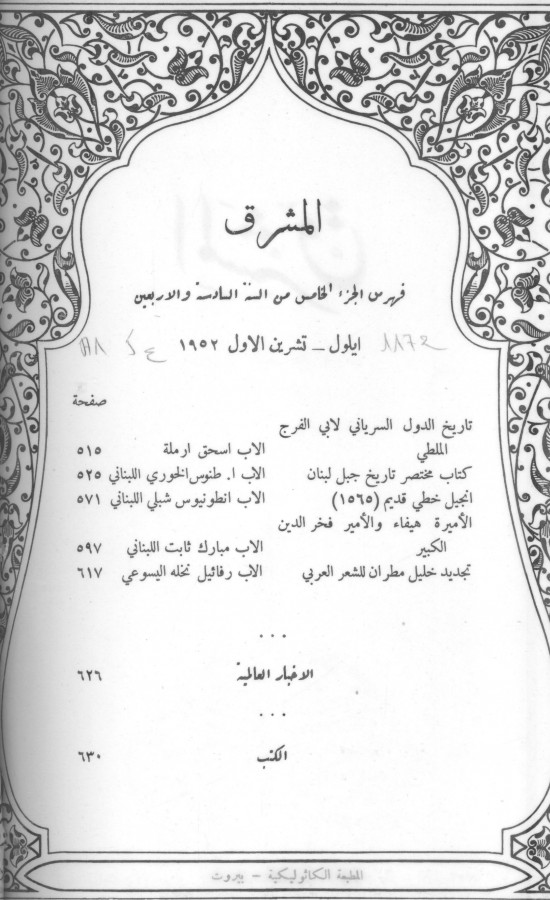 المشرق
فهرس الجزء الخامس من السنة السادسة والاربعين
ايلول - تشرين الاول ١٩٥٢
صفحة
تاريخ الدول السرياني لابي الفرج
الملطي الاب اسحق ارملة ٥١٥
كتاب مختصر تاريخ جبل لبنان الاب ا. طنوس الخوري اللبناني ٥٢٥
انجيل خطي قديم (١٥٦٥) الاب انطونيوس شبلي اللبناني ٥٧١
الأميرة هيفاء والأمير فخر الدين
الكبير الاب مبارك ثابت اللبناني ٥٩٧
تجديد خليل مطران للشعر العربي الاب رفائيل نخله اليسوعي ٦١٧
...
الاخبار العالمية ٦٢٦
...
الكتب ٦٣٠
المطبعة الكاثوليكية - بيروت